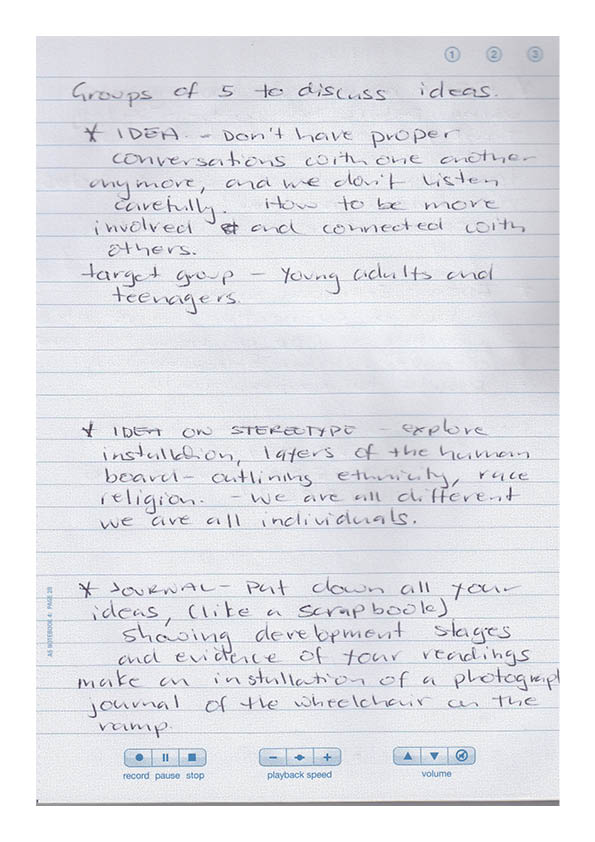 1 2 3
Groups of 5 to discuss ideas.
* IDEA - Don't have proper
conversations with one another
anymore, and we don't listen
carefully. How to be more
involved and connected with
others.
target group - Young adults and
teenagers.
* IDEA ON STEREOTYPE - explore
installation, layers of the human
board - outlining ethnicity, race
religion. - we are all different
we are all individuals.
* JOURNAL - Put down all your
ideas, (like a scrapbook)
showing development stages
and evidence of your readings
make an installation of a photograph
journal of the wheelchair on the
ramp.
A5 NOTEBOOK 4: PAGE 28
record pause stop
playback speed
volume